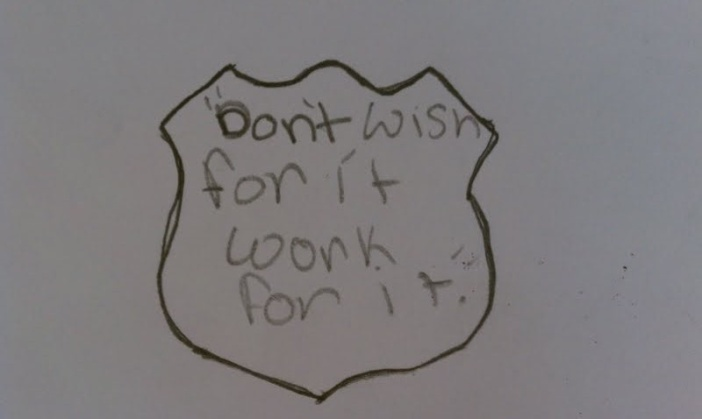 "Don't wish
for it
work
for it."